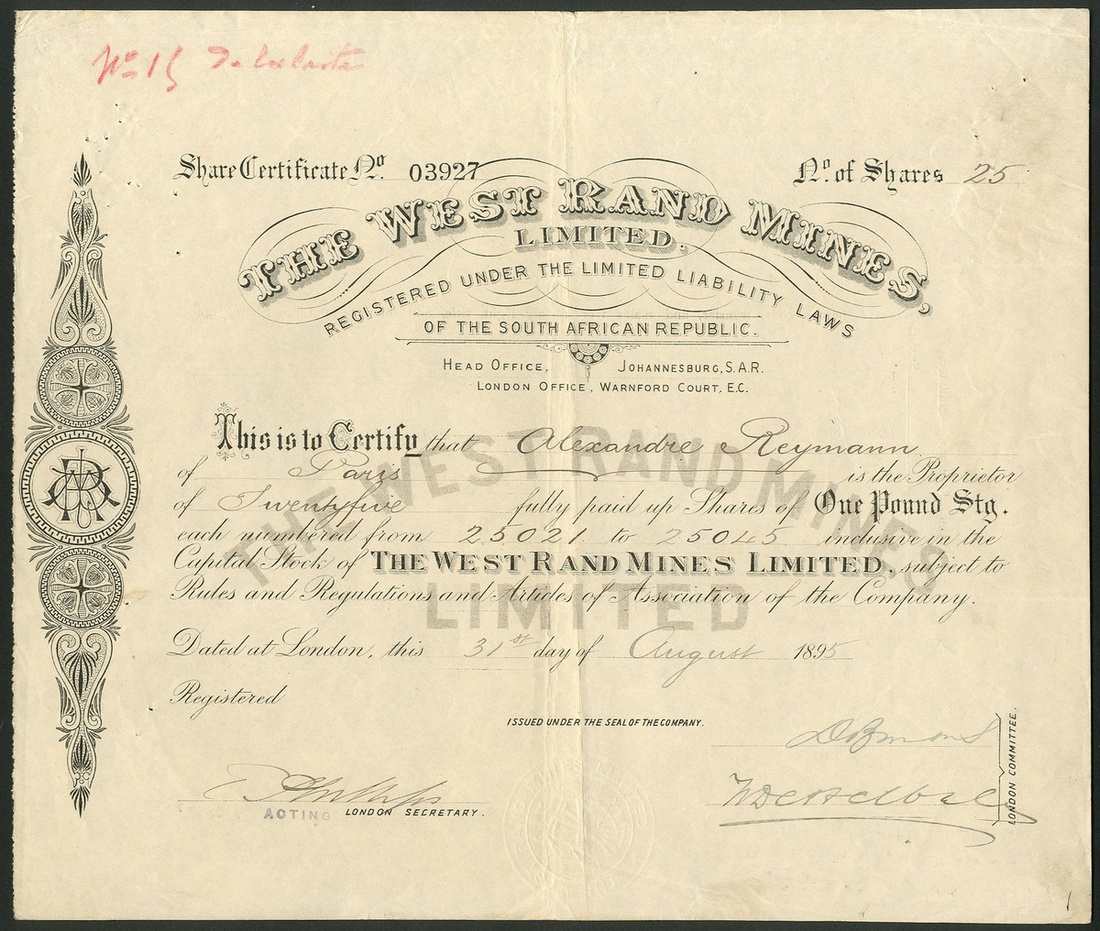 No 15
Share Certificate No. 03927
No. of Shares 25
THE WEST RAND MINES,
LIMITED.
REGISTERED UNDER THE LIMITED LIABILITY LAWS
OF THE SOUTH AFRICAN REPUBLIC.
HEAD OFFICE, JOHANNESBURG, S.A.R.
LONDON OFFICE, WARNFORD COURT, E.C.
This is to Certify that Alexandre Reymann
of Paris is the Proprietor
of Twentyfive fully paid up Shares of One Pound Stg.
each numbered from 25021 to 25045 inclusive in the
Capital Stock of THE WEST RAND MINES LIMITED, subject to
Rules and Regulations and Articles of Association of the Company.
THE WEST RAND MINES
LIMITED
Dated at London, this 31st day of August 1895
Registered
ISSUED UNDER THE SEAL OF THE COMPANY.
ACTING LONDON SECRETARY.
LONDON COMMITTEE.